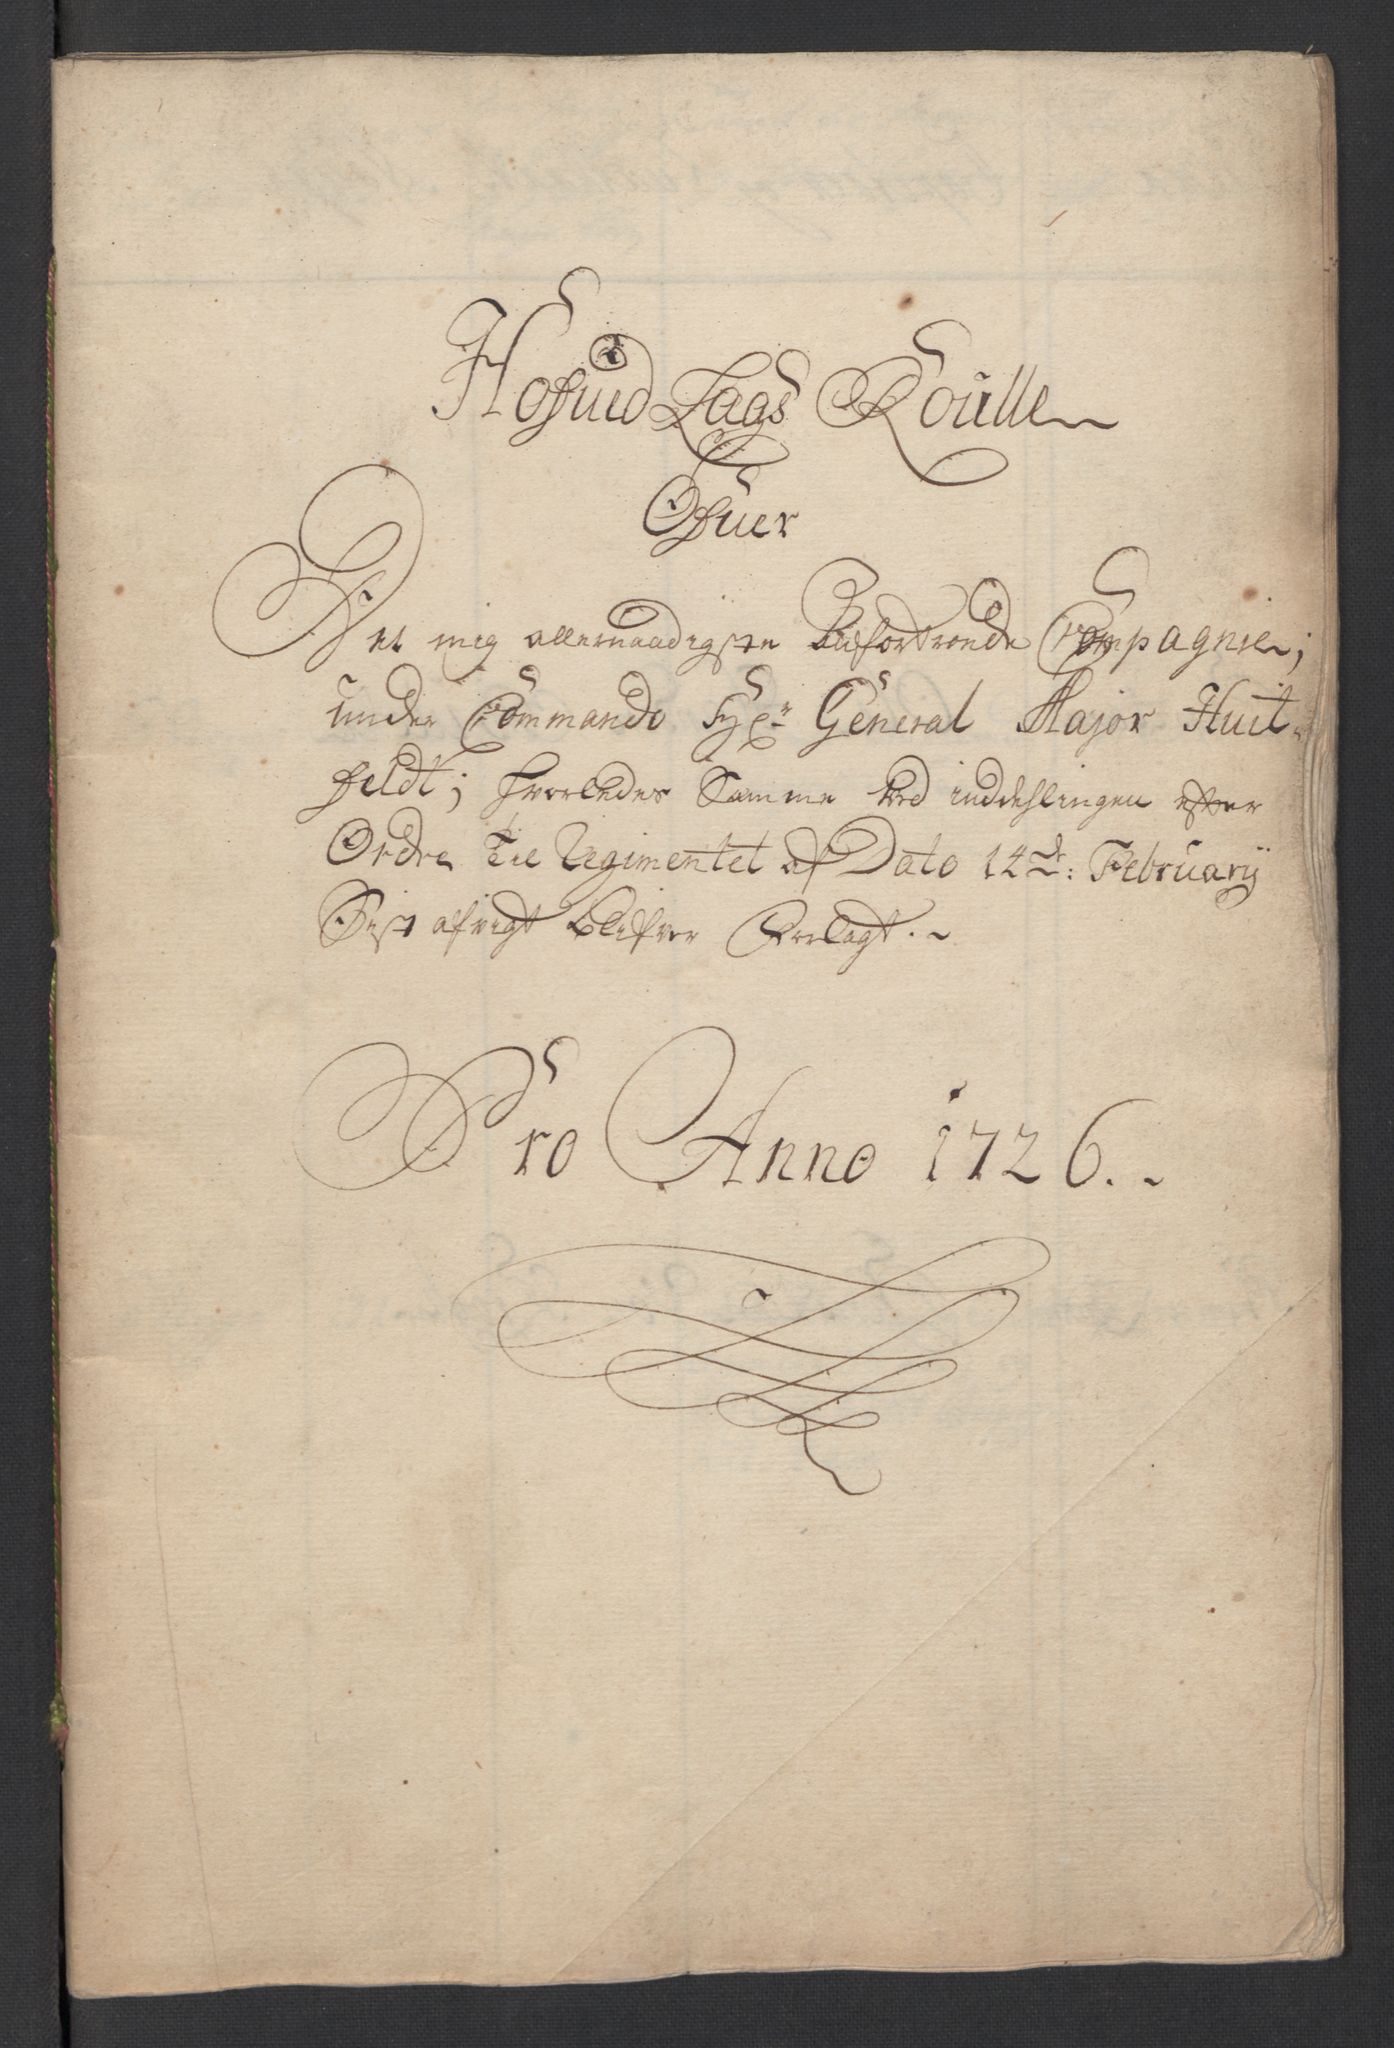 Hofuid Lags Roulle
Ofuer
Det mig allernaadigste Betroede Compagnie;
under Commando Hr General Major Huit-
feldt; hvorledes Samme ved inddehlingen efter
Ordre Til Regimentet af Dato 12de: February
Sist afvigt blifver Forlagt.
Pro Anno 1726.